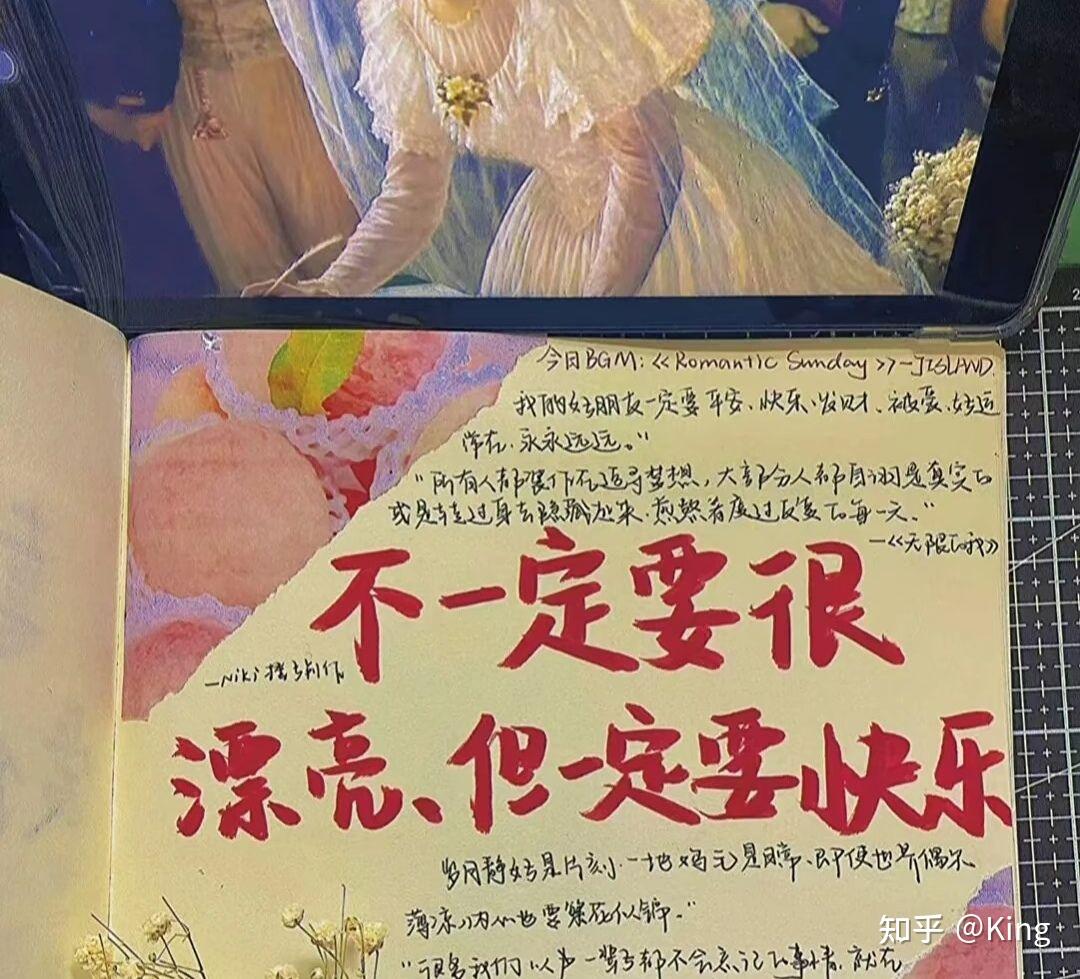 今日BGM:《Romantic Sunday》-JISLAND.
我的好朋友一定要平安、快乐、发财、被爱、好运
常在、永永远远。"
"所有人都装作不追寻梦想,大部分人都自诩是真实的
或是转过身去隐藏起来,煎熬着度过反复的每一天。"
—《无限的我》
不一定要很
—Niki 制作
漂亮、但一定要快乐
岁月静好是片刻、一地鸡毛是日常、即便世界偶尔
薄凉、内心也要繁花似锦。"
"很多我们以为一辈子都不会忘记的事情,就在
知乎 @King